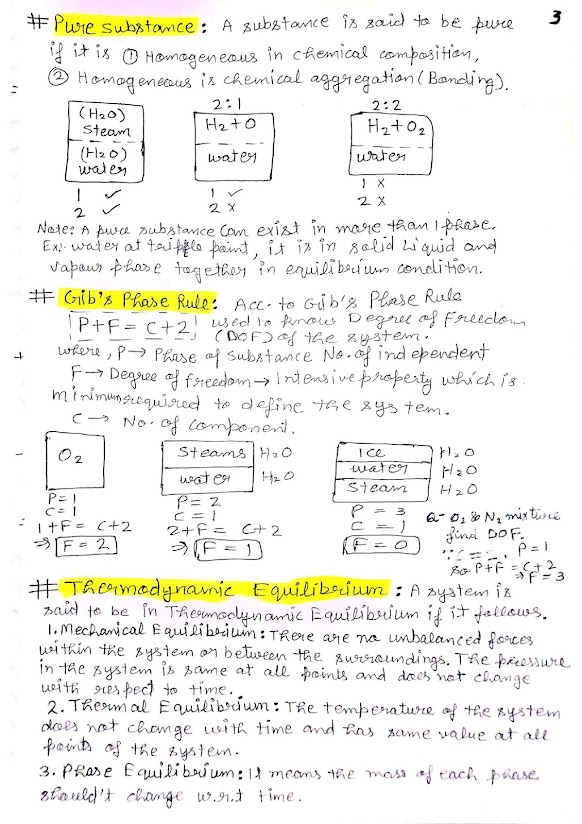 3
# Pure substance : A substance is said to be pure
if it is ① Homogeneous in chemical composition,
② Homogeneous is chemical aggregation (Bonding).
2:1 2:2
(H2O) Steam H2+O H2+O2
(H2O) water water water
1 ✓ 1 ✓ 1 x
2 ✓ 2 x 2 x
Note: A pure substance can exist in more than 1 phase.
Ex:- water at tripple point, it is in solid Liquid and
vapour phase together in equilibrium condition.
# Gib's Phase Rule: Acc. to Gib's Phase Rule
P+F = C+2 used to know Degree of Freedom
(DOF) of the system.
where, P→ Phase of Substance No. of independent
F→ Degree of freedom → Intensive property which is
minimum required to define the system.
C → No. of component.
O2 Steams H2O Ice H2O
water H2O water H2O
Steam H2O
P=1 P=2 P = 3
C=1 C=1 C = 1
1+F= C+2 2+F= C+2 F=0
⇒ F=2 ⇒ F=1
Q- O2 & N2 mixture
find DOF.
∵ C=2, P=1
So P+F = C+2
⇒F=3
# Thermodynamic Equilibrium : A system is
said to be in Thermodynamic Equilibrium if it follows.
1. Mechanical Equilibrium: There are no unbalanced forces
within the system or between the surroundings. The pressure
in the system is same at all points and does not change
with respect to time.
2. Thermal Equilibrium: The temperature of the system
does not change with time and has same value at all
points of the system.
3. Phase Equilibrium: It means the mass of each phase
should't change w.r.t time.